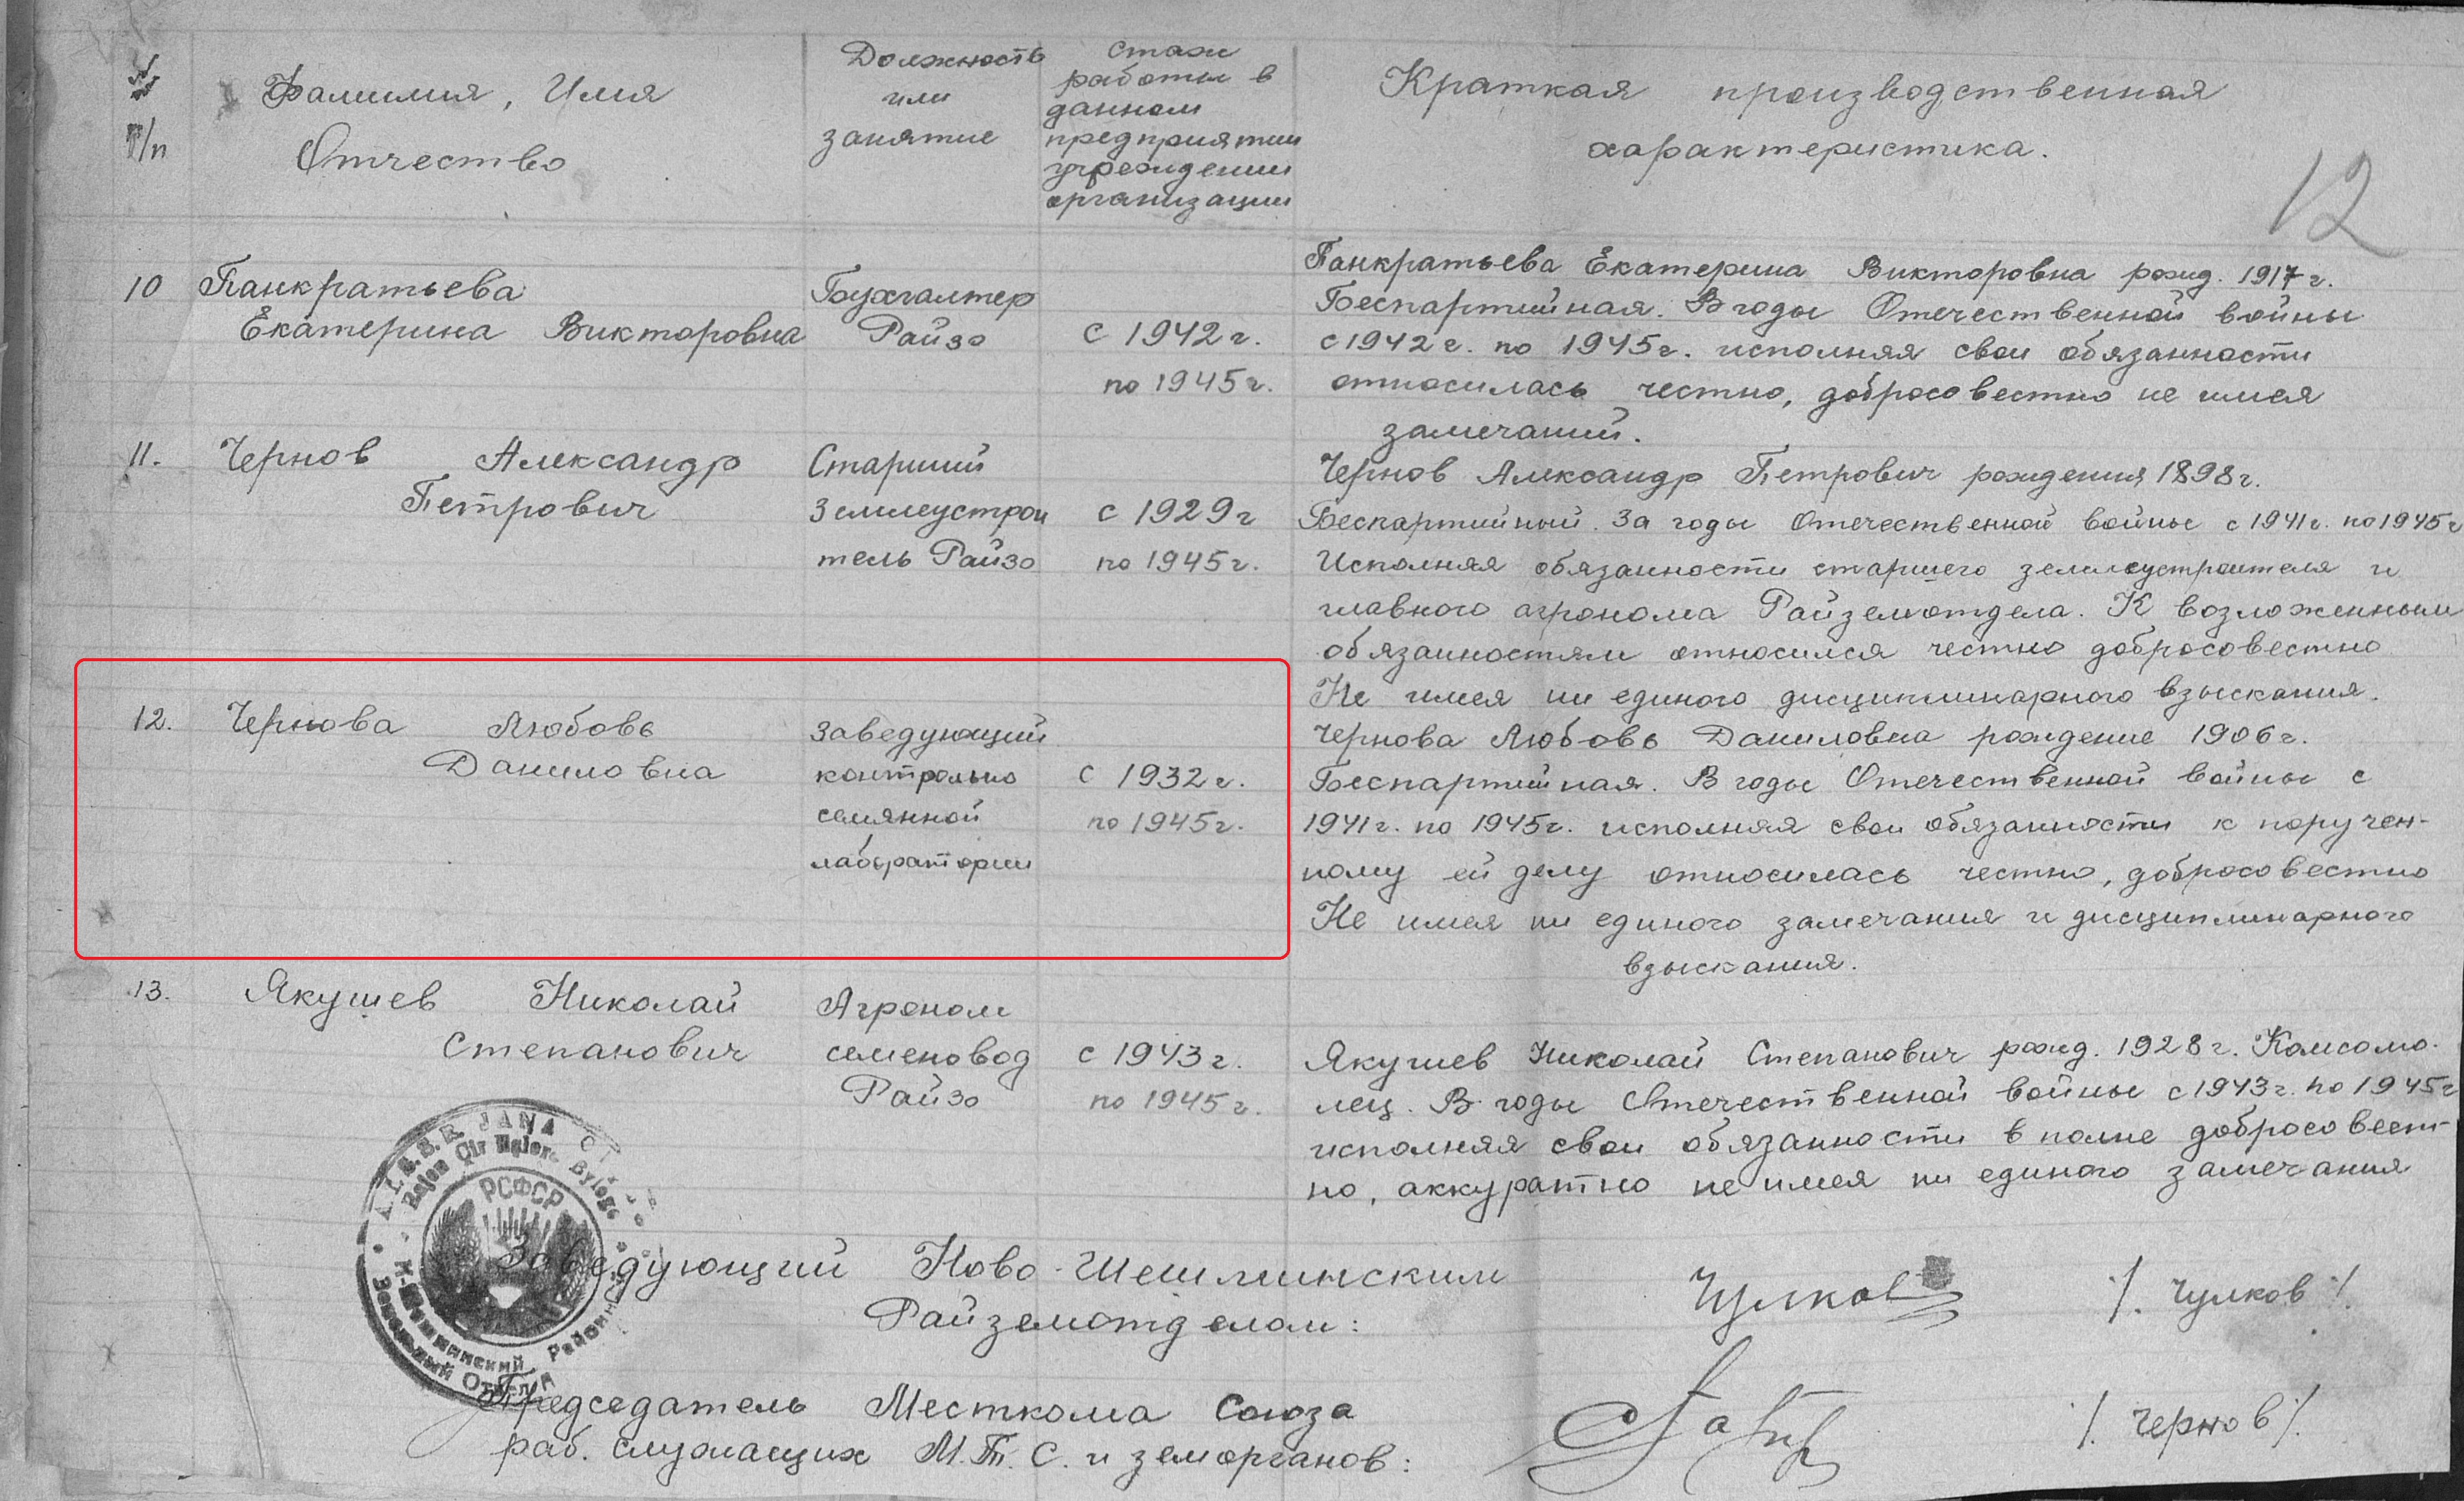 № п/п
Фамилия, Имя
Отчество
Должность
или
занятие
Стаж
работы в
данном
предприятии
учреждении
организации
Краткая производственная
характеристика.
12
10
Панкратьева
Екатерина Викторовна
Бухгалтер
Райзо
с 1942 г.
по 1945 г.
Панкратьева Екатерина Викторовна рожд. 1917 г.
Беспартийная. В годы Отечественной войны
с 1942 г. по 1945 г. исполняя свои обязанности
относилась честно, добросовестно не имея
замечаний.
11.
Чернов Александр
Петрович
Старший
землеустрои
тель Райзо
с 1929 г
по 1945 г.
Чернов Александр Петрович рождения 1898 г.
Беспартийный. За годы Отечественной войны с 1941 г. по 1945 г
Исполняя обязанности старшего землеустроителя и
главного агронома Райземотдела. К возложенным
обязанностям относился честно добросовестно
Не имея ни единого дисциплинарного взыскания.
12.
Чернова Любовь
Даниловна
Заведующий
контрольно
семянной
лаборатории
с 1932 г.
по 1945 г.
Чернова Любовь Даниловна рождение 1906 г.
Беспартийная. В годы Отечественной войны с
1941 г. по 1945 г. исполняя свои обязанности к поручен-
ному ей делу относилась честно, добросовестно
Не имея ни единого замечания и дисциплинарного
взыскания.
13.
Якушев Николай
Степанович
Агроном
семеновод
Райзо
с 1943 г.
по 1945 г.
Якушев Николай Степанович рожд. 1928 г. Комсомо-
лец. В годы Отечественной войны с 1943 г. по 1945 г
исполняя свои обязанности в полне добросовест-
но, аккуратно не имея ни единого замечания
РСФСР
Земельный Отдел
Заведующий Ново-Шешминским
Райземотделом:
Чулков
/. Чулков /.
Председатель Месткома Союза
раб. служащих М.Т.С. и земорганов:
/. Чернов /.